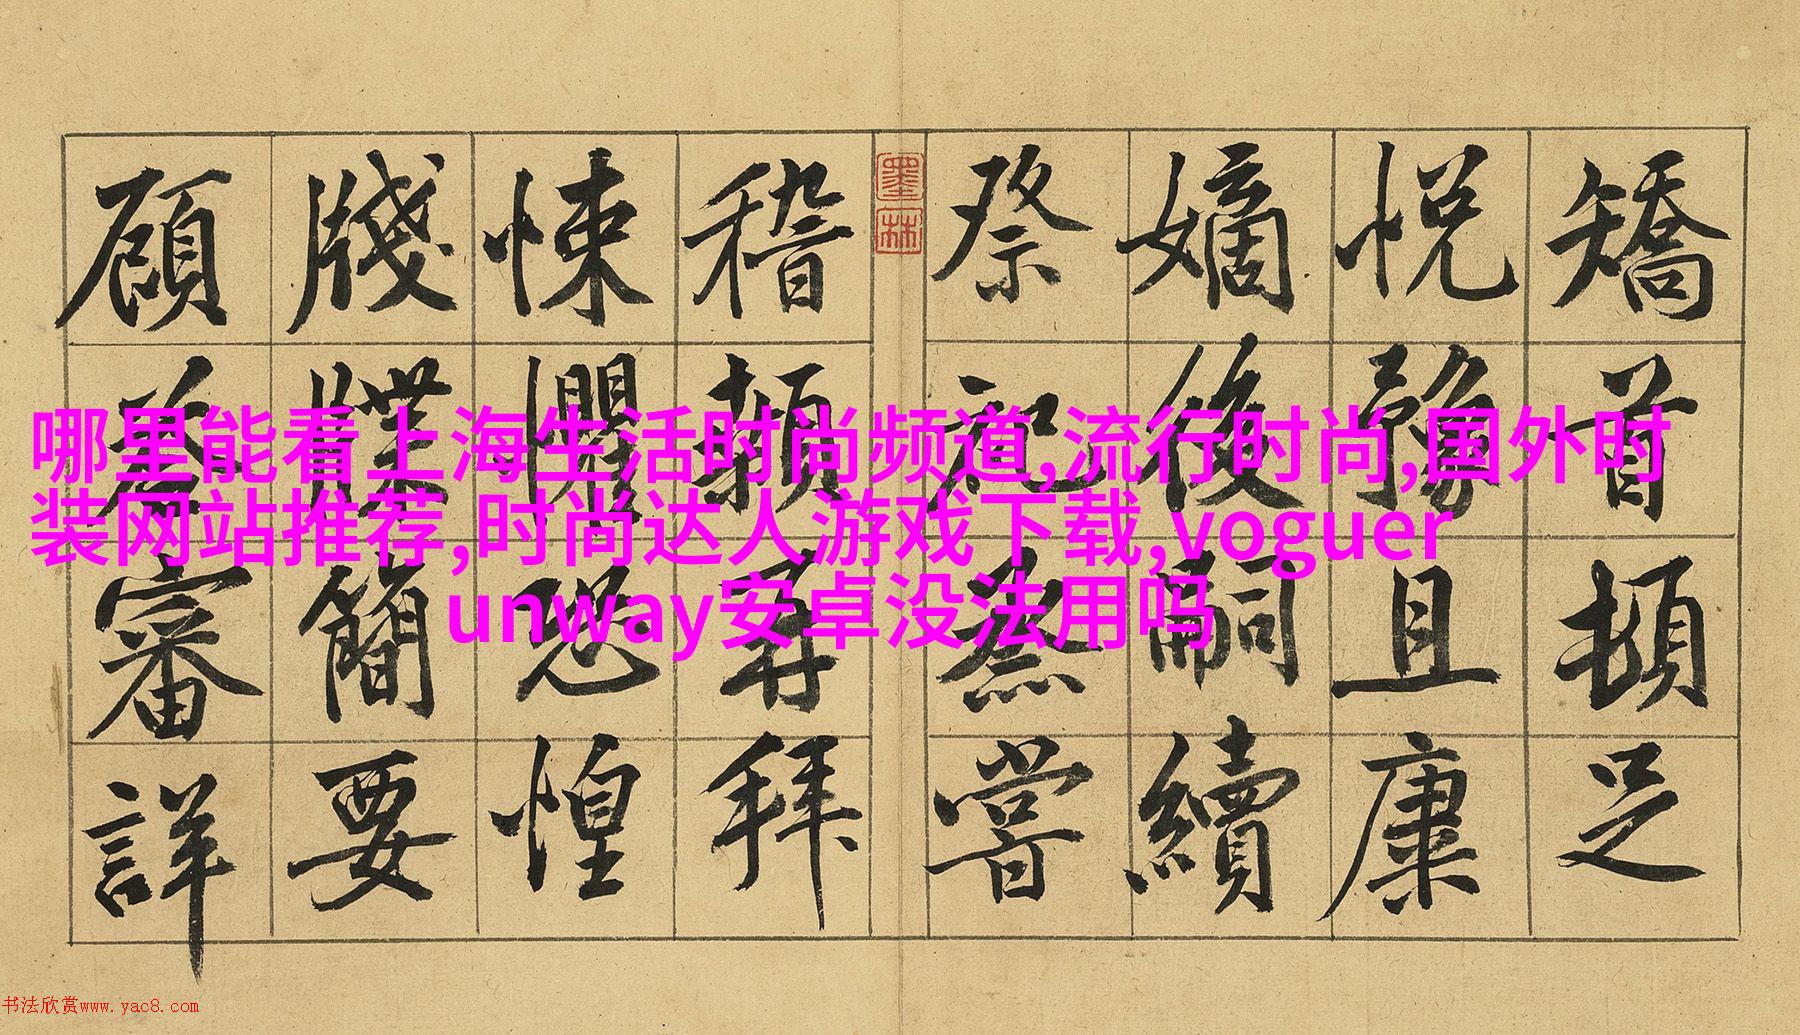 矯首頓足
悅豫且康
嫡後嗣續
祭祀蒸嘗
墨林
稽顙再拜
悚懼恐惶
牋牒簡要
顧答審詳
哪里能看上海生活时尚频道,流行时尚,国外时
装网站推荐,时尚达人游戏下载,voguer
unway安卓没法用吗
书法欣赏www.yac8.com